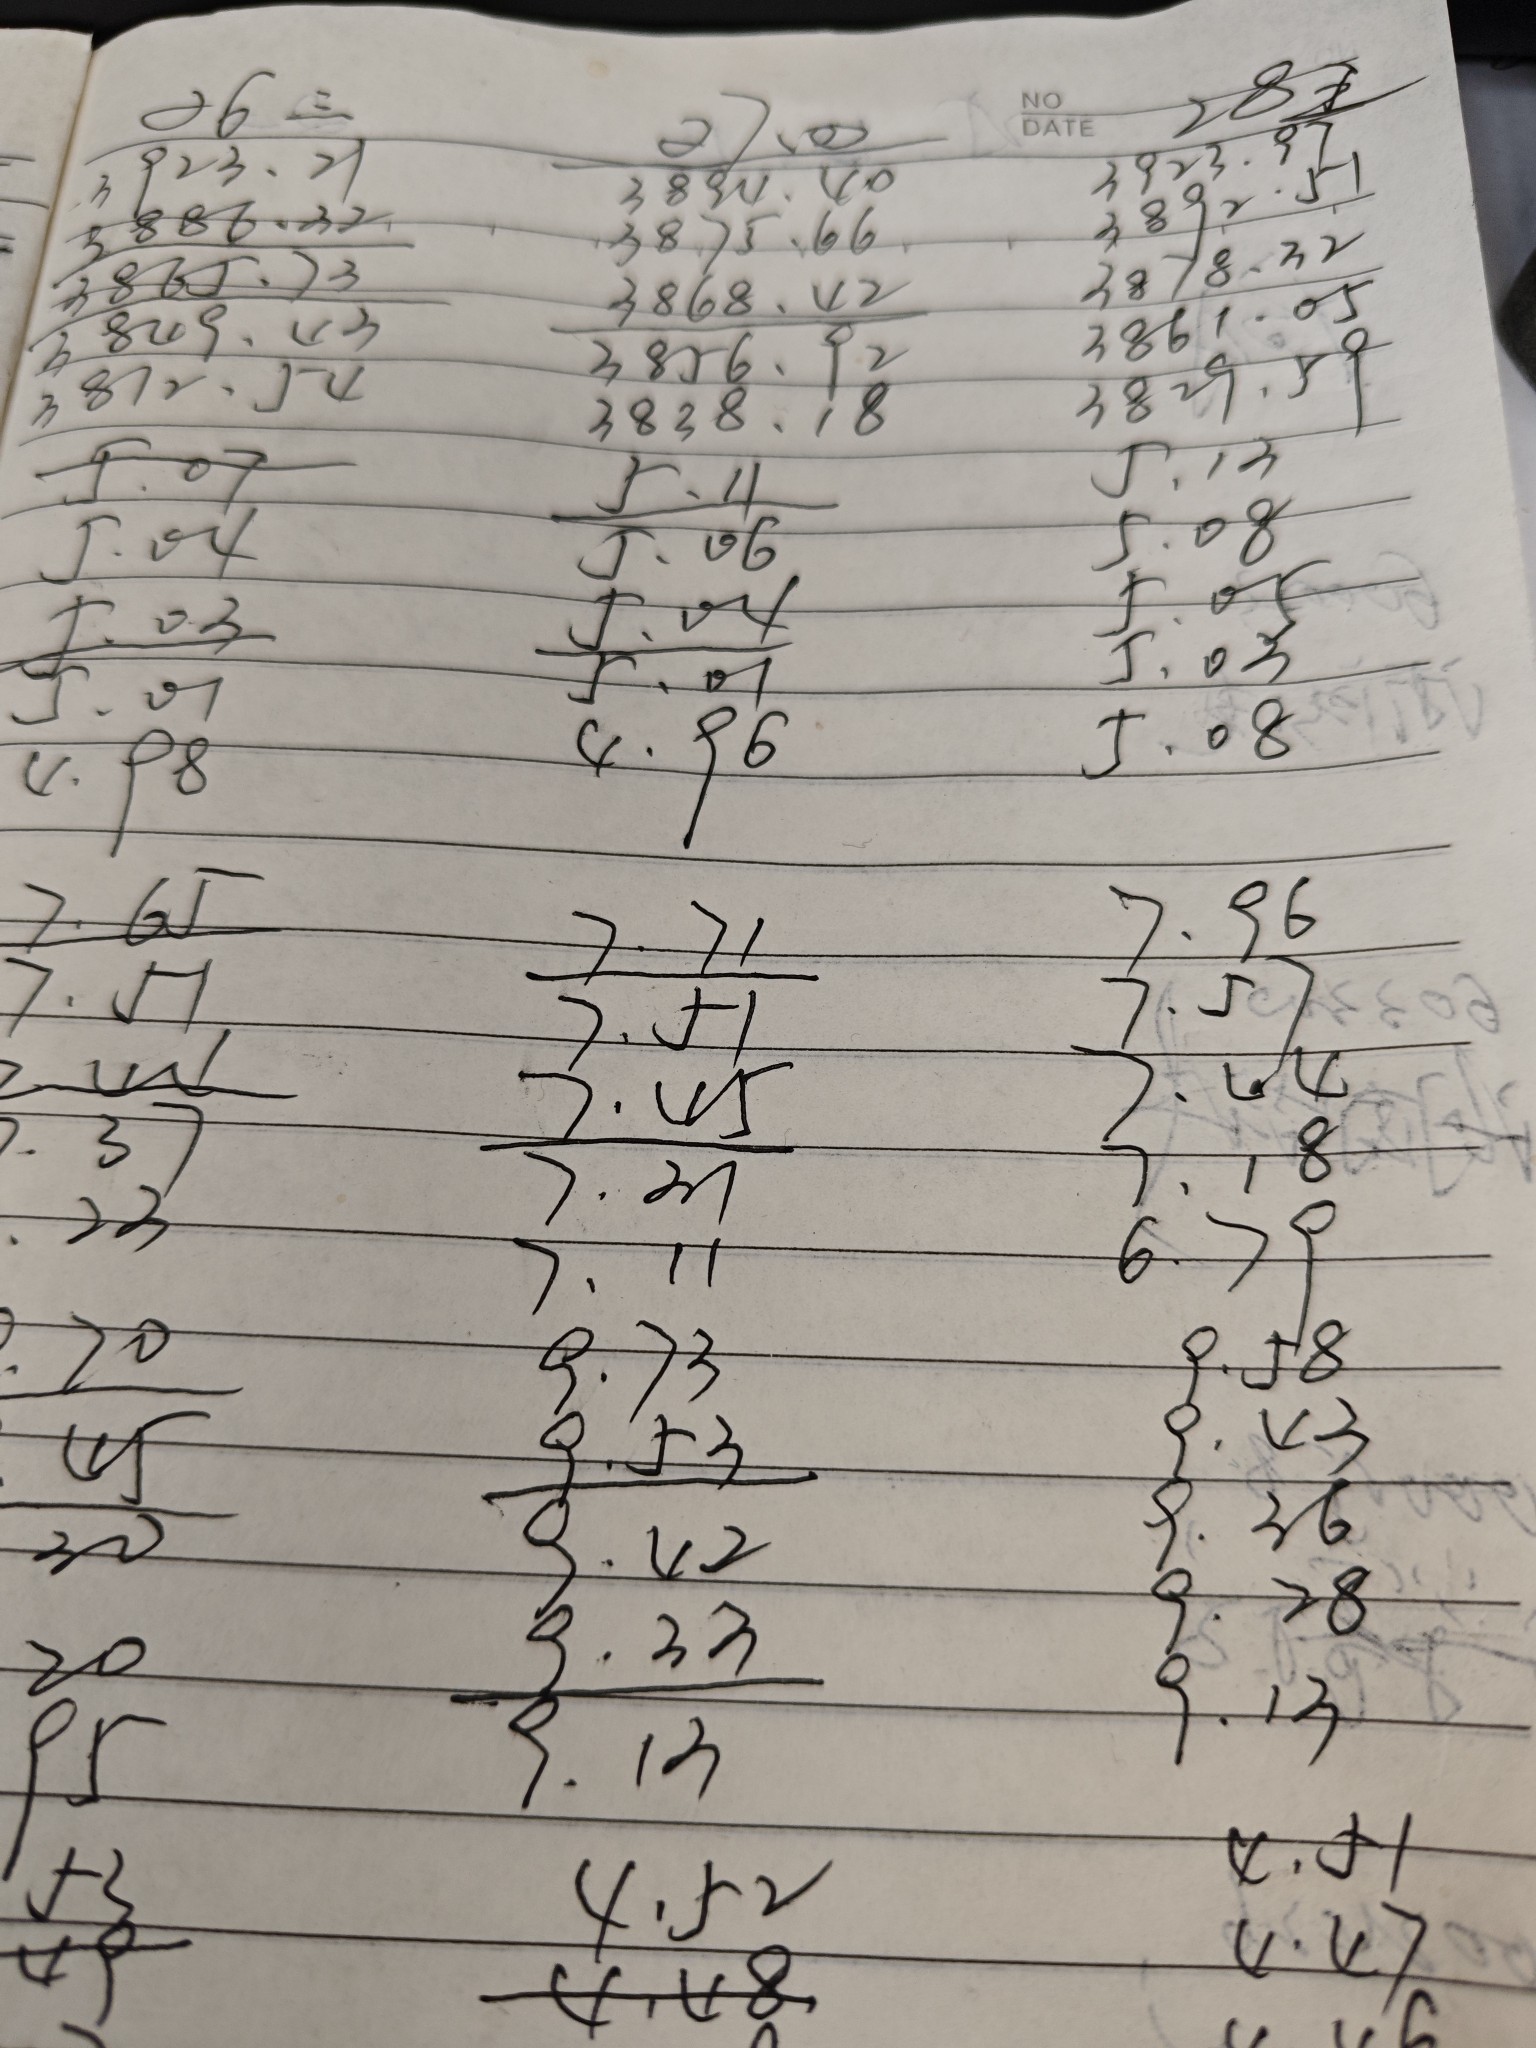 26 三
3923.21
3886.32
3865.73
3849.43
3812.54
5.07
5.04
5.03
5.01
4.98
7.65
7.51
7.44
7.37
.23
.70
.45
30
20
95
53
49
27 四
3894.40
3875.66
3868.42
3856.92
3838.18
5.11
5.06
5.04
5.01
4.96
7.71
7.51
7.45
7.31
7.11
9.73
9.53
9.42
9.33
9.13
4.52
4.48
NO
DATE
28五
3923.97
3892.51
3878.32
3861.05
3829.59
5.13
5.08
5.05
5.03
5.08
7.96
7.57
7.44
7.18
6.79
9.58
9.43
9.36
9.28
9.13
4.51
4.47
4.46